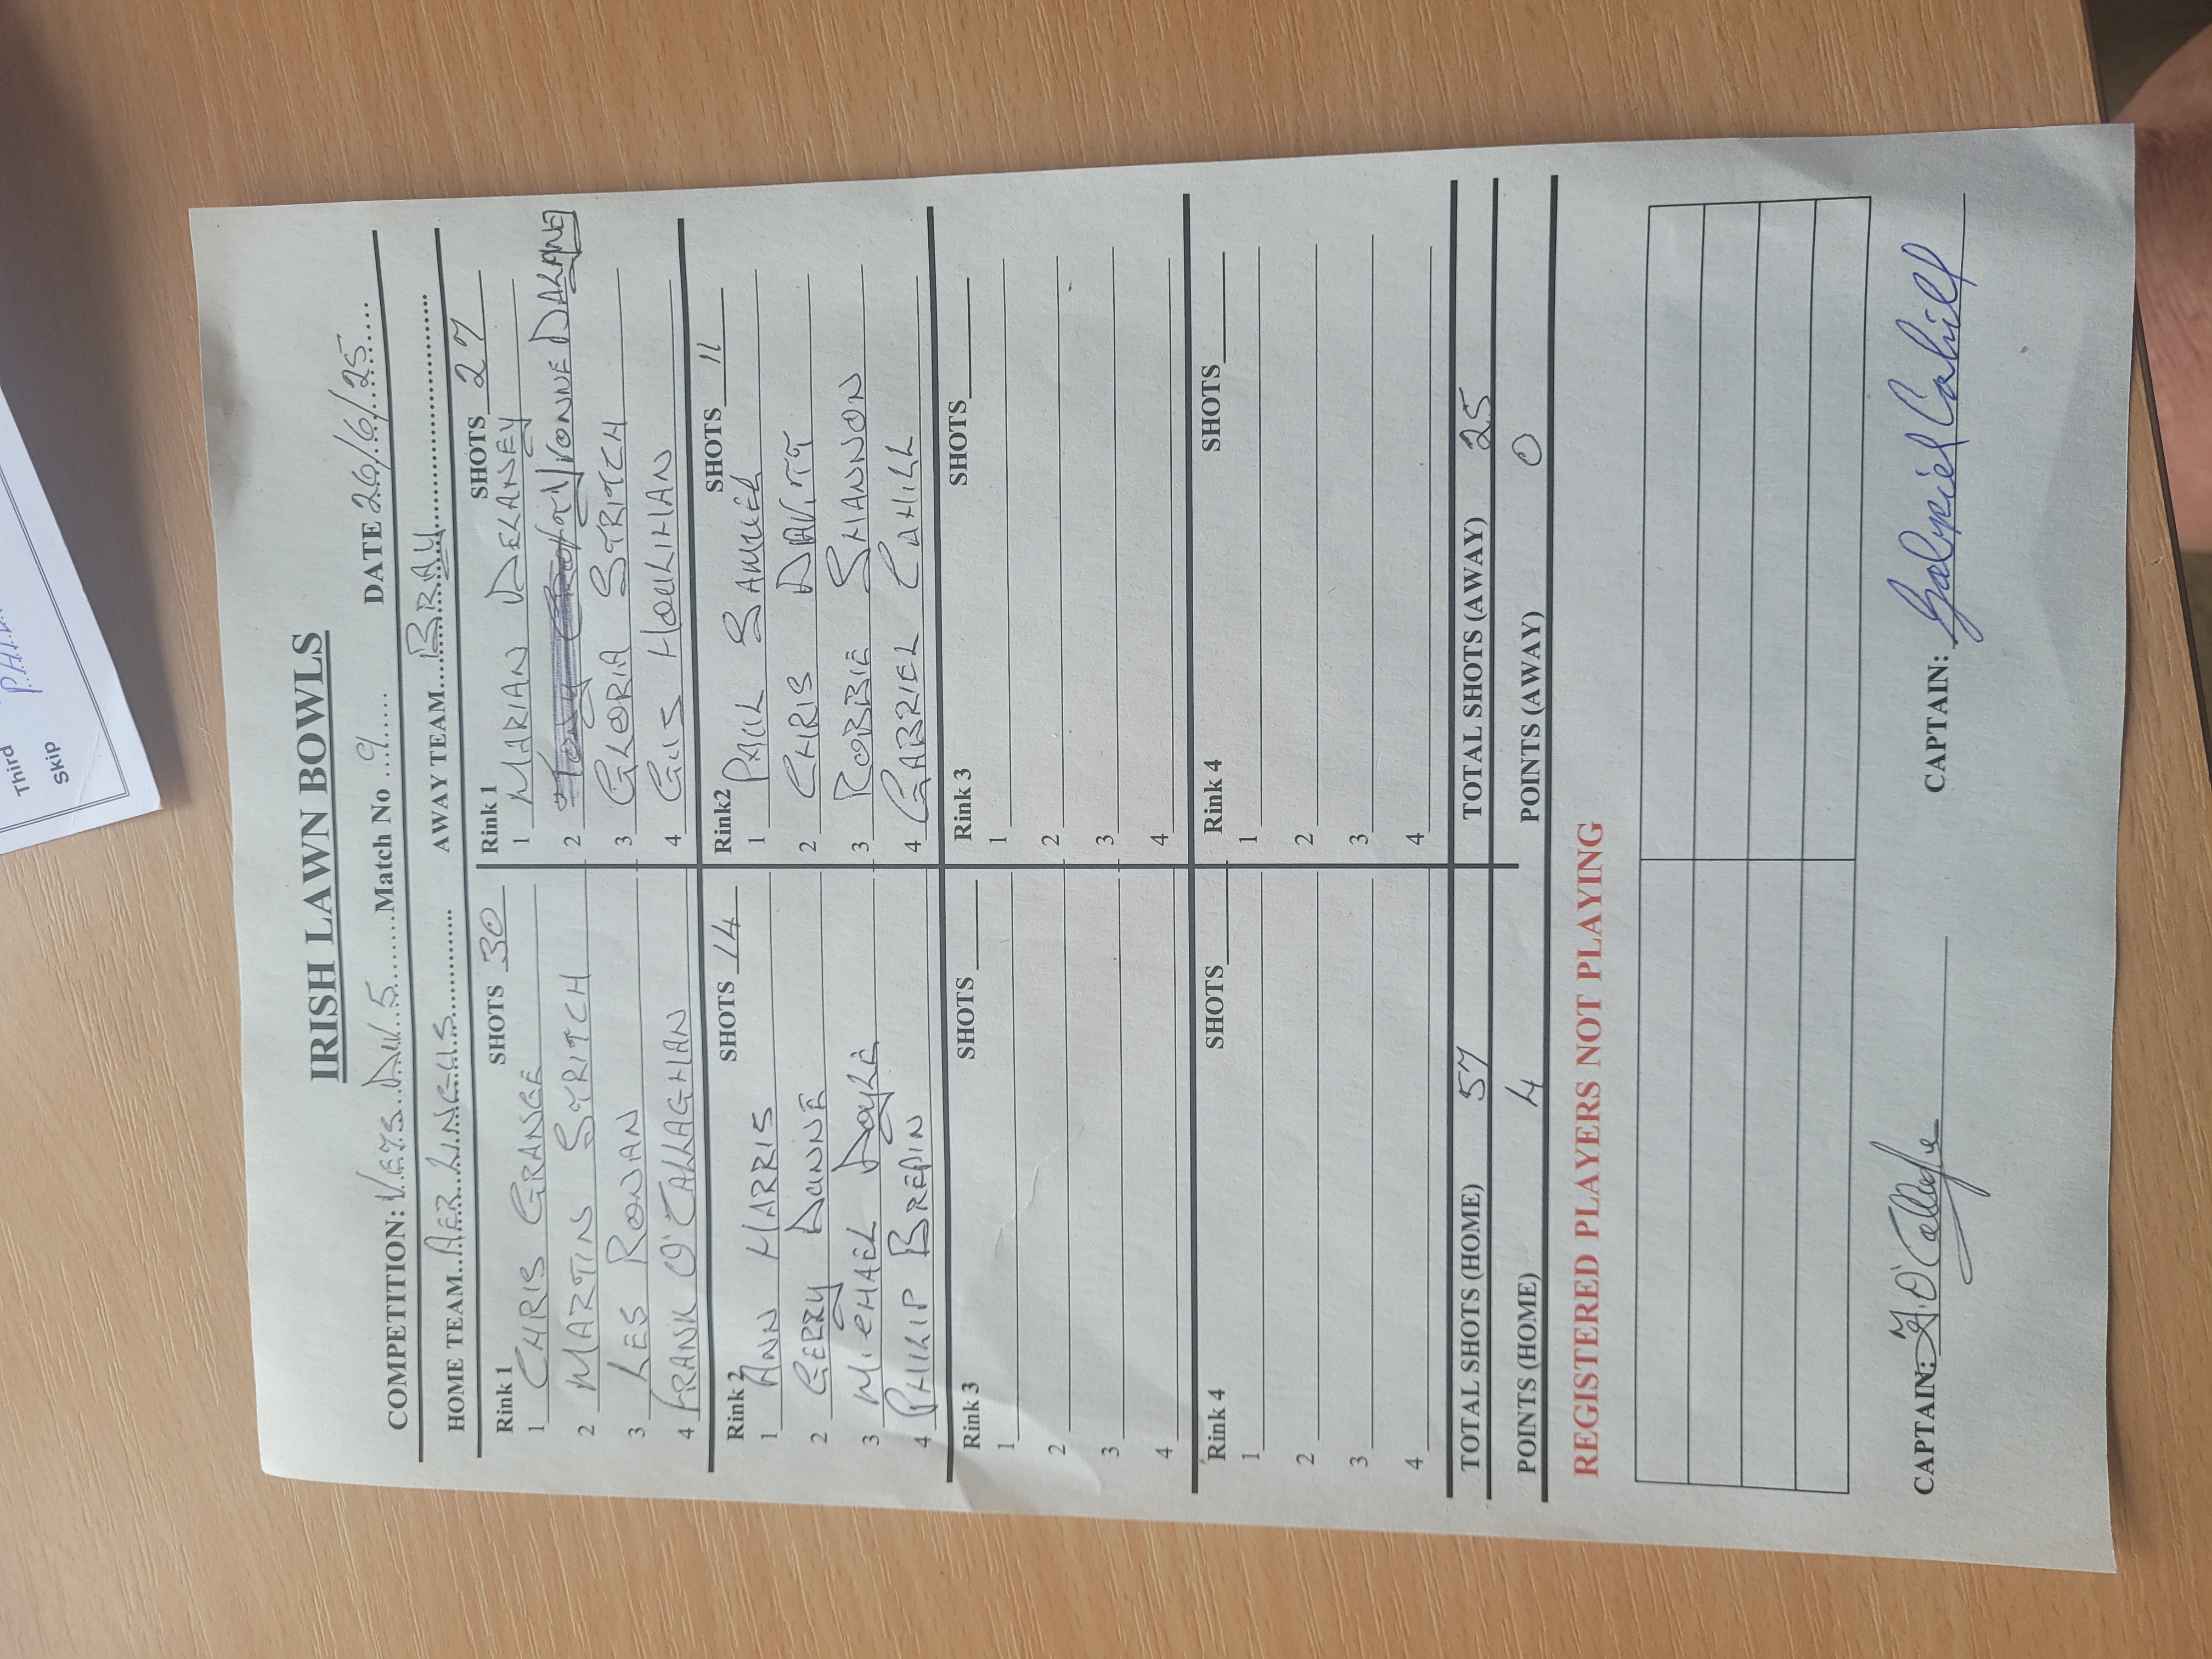 Third
Skip
IRISH LAWN BOWLS
COMPETITION: VETS DIV 5 Match No 9 DATE 26/6/25
HOME TEAM AER LINGUS AWAY TEAM BRAY
Rink 1 SHOTS 30 Rink 1 SHOTS 27
1 CHRIS GRANGE 1 MARIAN DELANEY
2 MARTIN STRITCH 2 YVONNE
3 LES ROWAN 3 GLORIA STRITCH
4 FRANK O'CALLAGHAN 4 GUS HOULIHAN
Rink 2 SHOTS 14 Rink2 SHOTS 11
1 ANN HARRIS 1 PAUL SAMUEL
2 GERRY DUNNE 2 CHRIS DAVITT
3 MICHAEL DOYLE 3 ROBBIE SHANNON
4 PHILIP BREPIN 4 GABRIEL CAHILL
Rink 3 SHOTS Rink 3 SHOTS
1 1
2 2
3 3
4 4
Rink 4 SHOTS Rink 4 SHOTS
1 1
2 2
3 3
4 4
TOTAL SHOTS (HOME) 57 TOTAL SHOTS (AWAY) 25
POINTS (HOME) 4 POINTS (AWAY) 0
REGISTERED PLAYERS NOT PLAYING
CAPTAIN: CAPTAIN: Gabriel Cahill